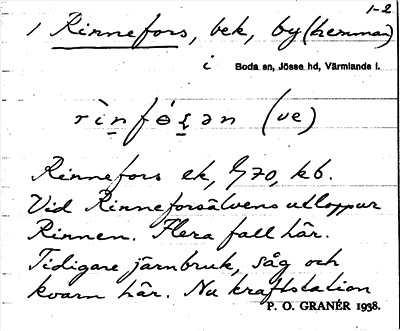 1-2
1 Rinnefors, bek, by (hemman)
i Boda sn, Jösse hd, Värmlands l.
rìn̠fɵ́s̠ən (ve)
Rinnefors ek, G70, kb.
Vid Rinneforsälvens utlopp ur
Rinnen. Flera fall här.
Tidigare järnbruk, såg och
kvarn här. Nu kraftstation
P. O. GRANÉR 1938.